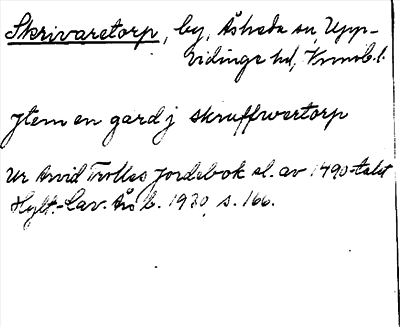 Skrivaretorp, by, Åsheda sn, Upp-
vidinge hd, Kronob. l.
Jtem en gard j skruffwertorp
Ur Arvid Trolles jordebok sl. av 1490-talet
Hylt.-Cav. Årsb. 1930, s. 166.